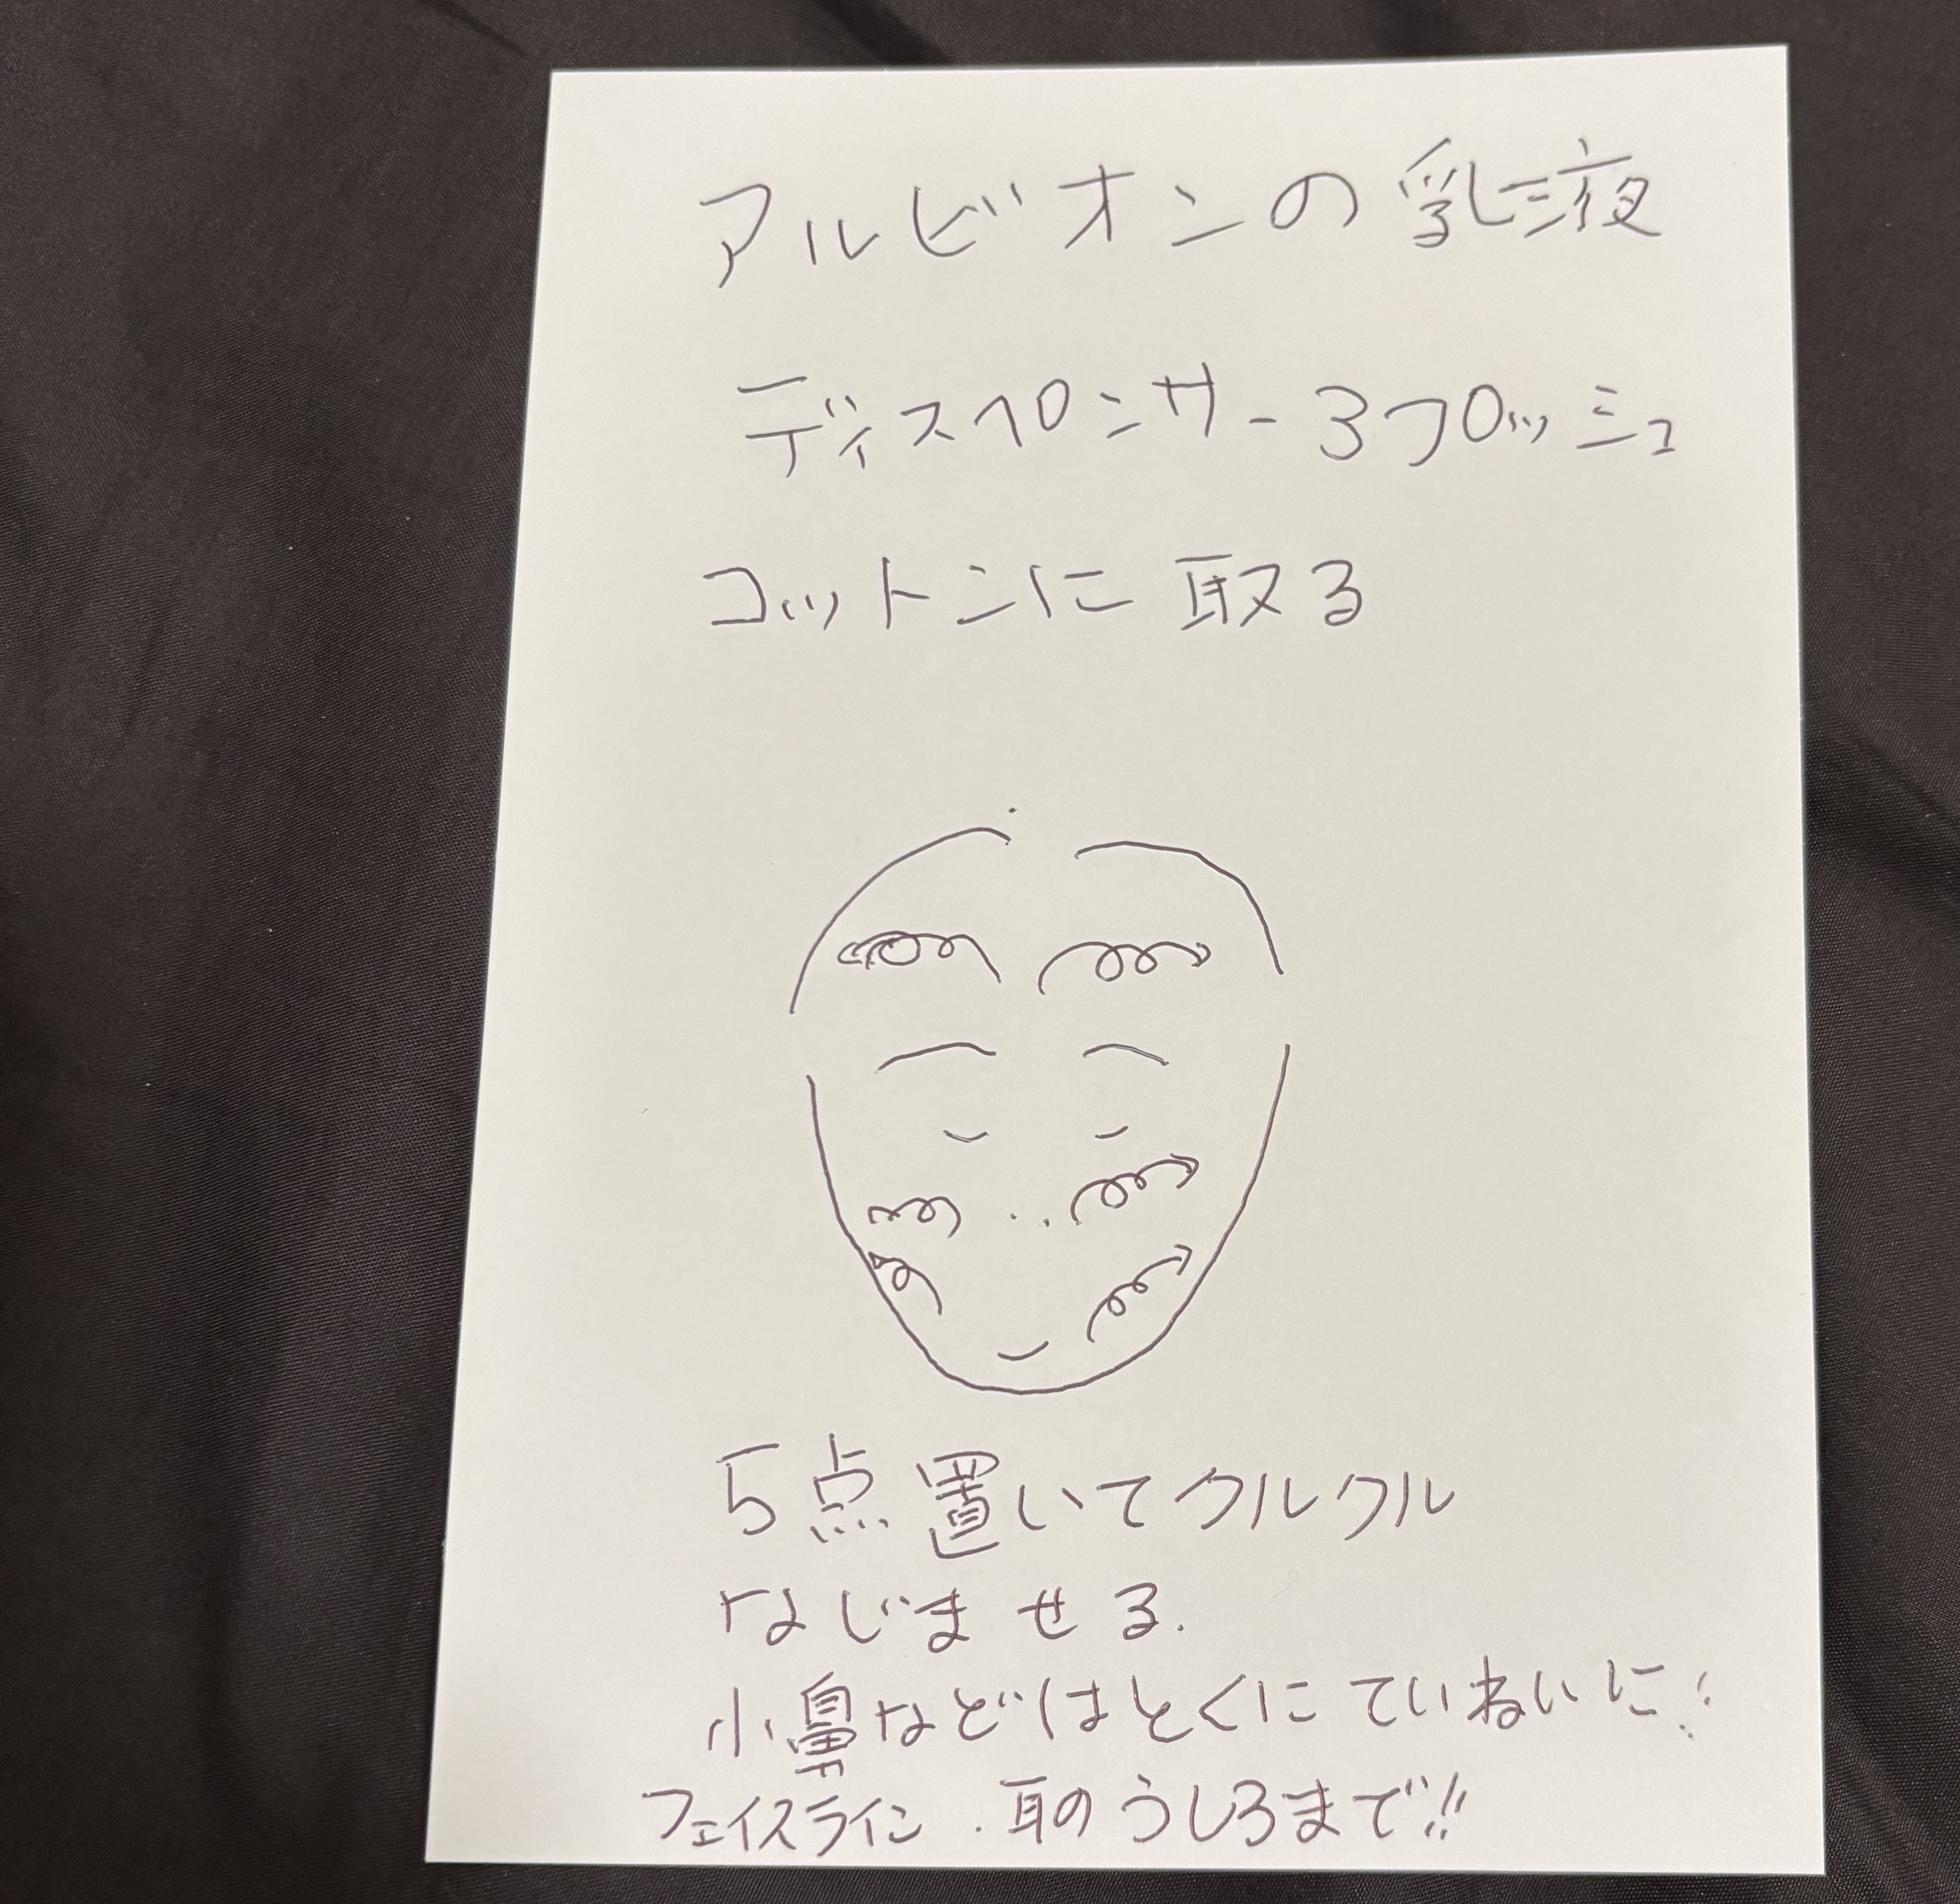 アルビオンの乳液
ディスペンサー3プッシュ
コットンに取る
5点置いてクルクル
なじませる.
小鼻などはとくにていねいに!
フェイスライン.耳のうしろまで!!